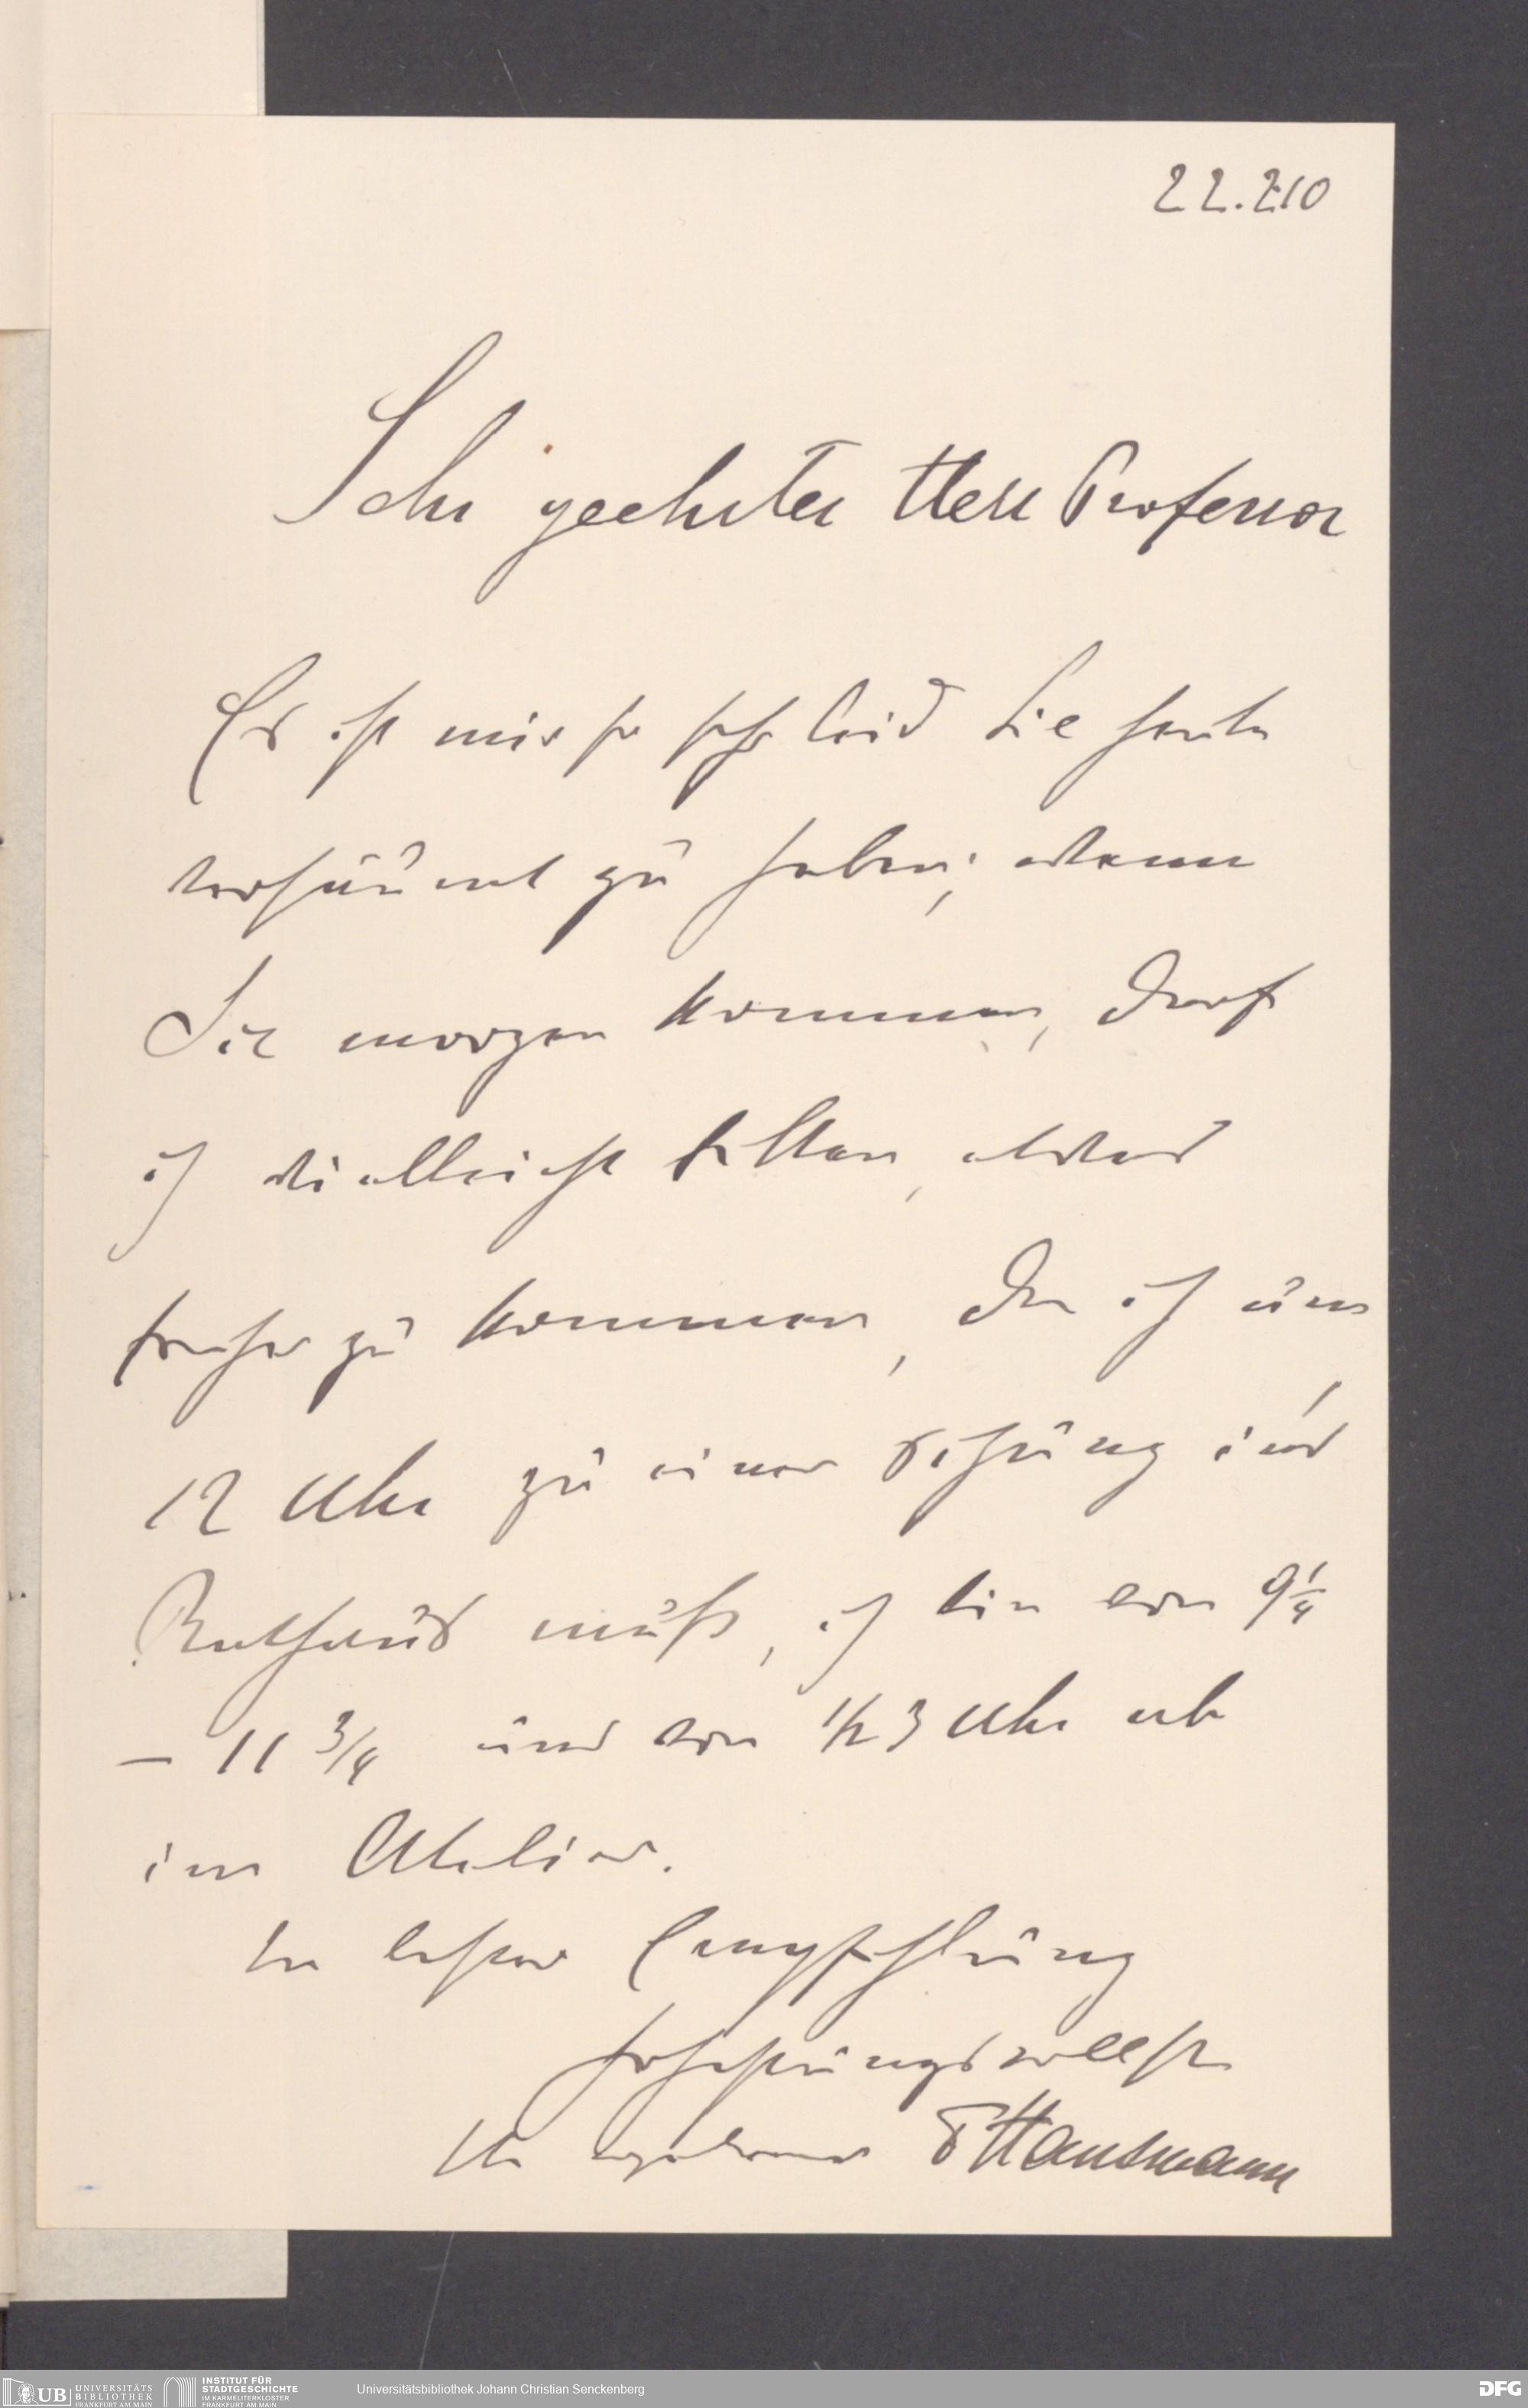 22.2.10
Sehr geehrter Herr Professor
Es ist mir so sehr leid Sie heute
versäumt zu haben; wenn
Sie morgen kommen, darf
ich vielleicht bitten, etwas
früher zu kommen, da ich um
12 Uhr zu einer Sitzung ins
Rathaus muß, ich bin von 9 1/4
– 11 3/4 und von 1/2 3 Uhr ab
im Atelier.
In bester Empfehlung
hochachtungsvollst
Ihr ergebener F Hausmann
UB UNIVERSITÄTS
BIBLIOTHEK
FRANKFURT AM MAIN
INSTITUT FÜR
STADTGESCHICHTE
IM KARMELITERKLOSTER
FRANKFURT AM MAIN
Universitätsbibliothek Johann Christian Senckenberg
DFG